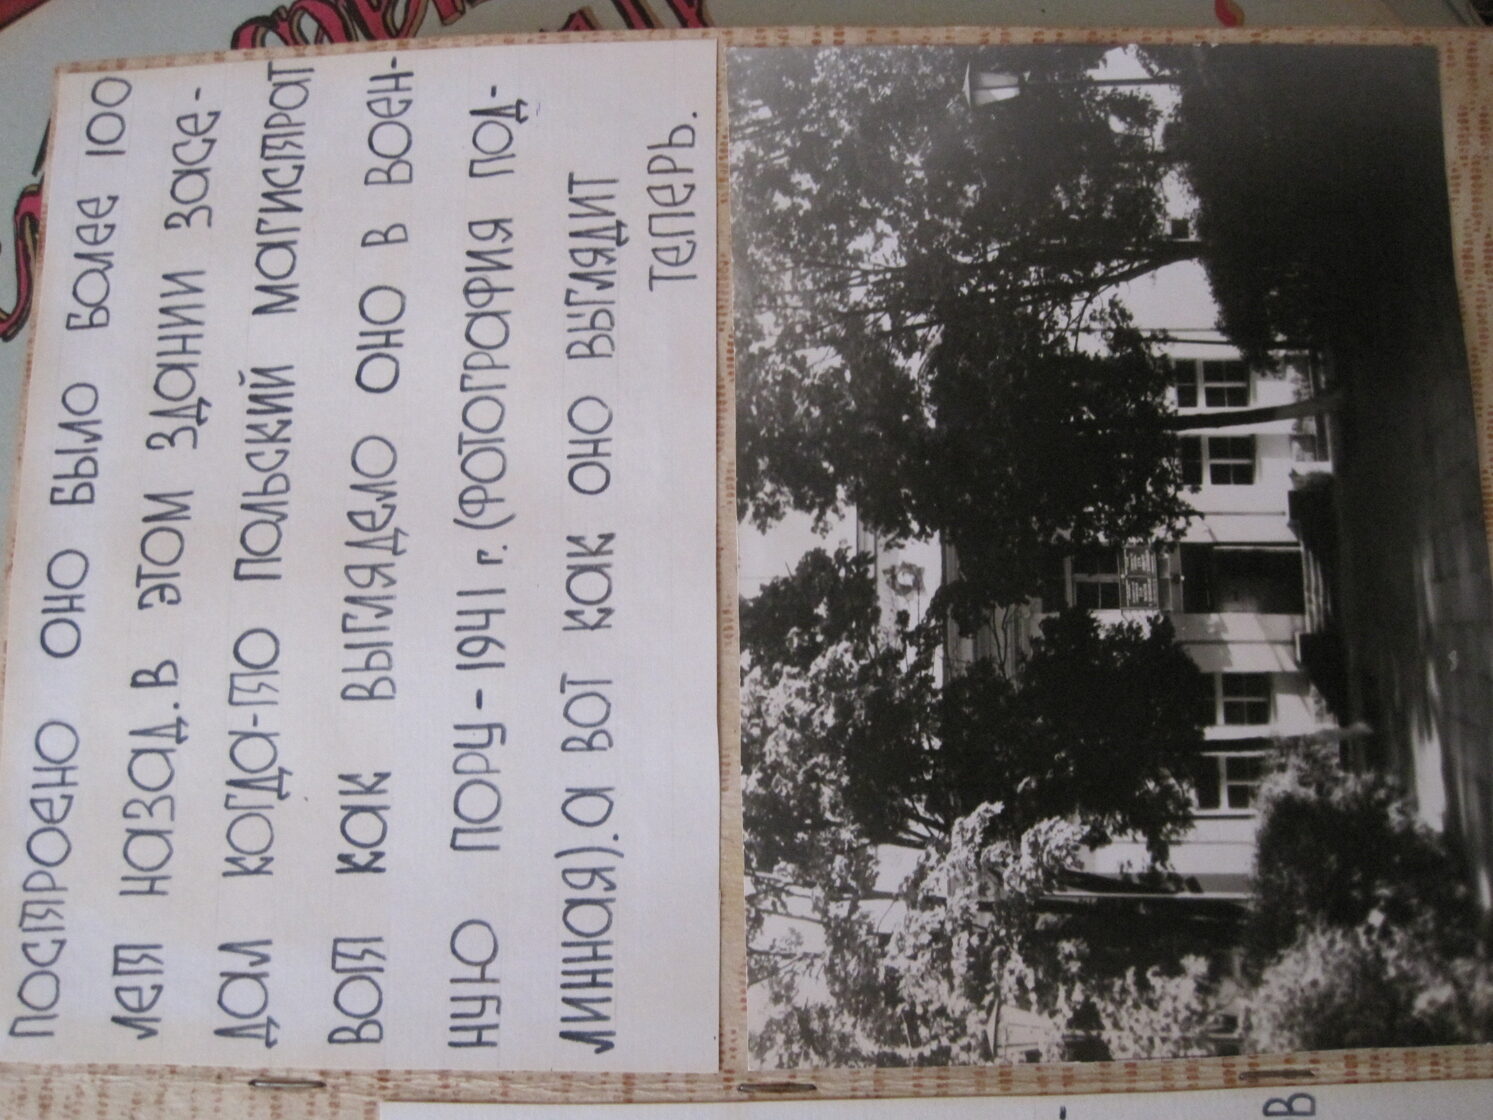 ПОСТРОЕНО ОНО БЫЛО БОЛЕЕ 100
ЛЕТ НАЗАД. В ЭТОМ ЗДАНИИ ЗАСЕ-
ДАЛ КОГДА-ТО ПОЛЬСКИЙ МАГИСТРАТ
ВОТ КАК ВЫГЛЯДЕЛО ОНО В ВОЕН-
НУЮ ПОРУ - 1941 г. (ФОТОГРАФИЯ ПОД-
ЛИННАЯ). А ВОТ КАК ОНО ВЫГЛЯДИТ
ТЕПЕРЬ.
В